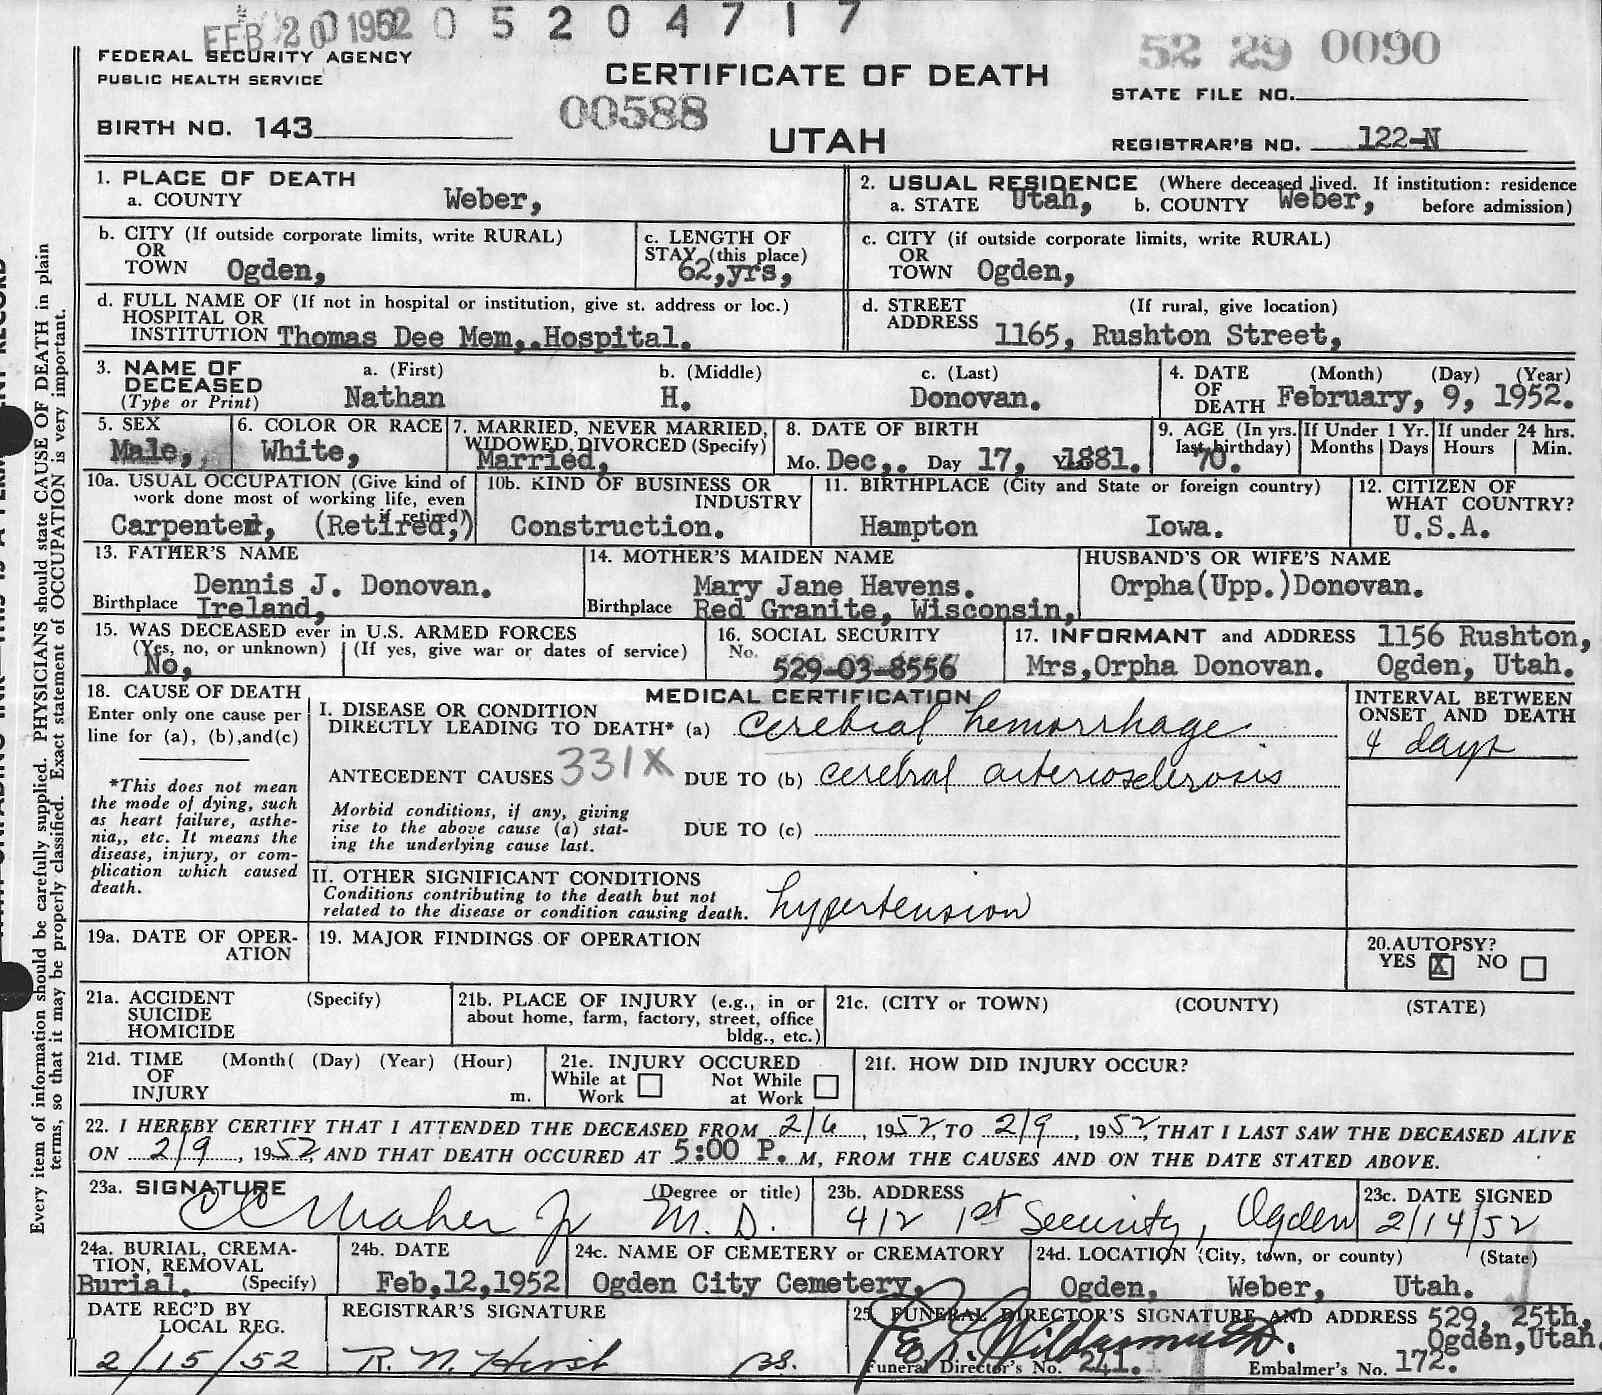 FEB 20 1952 0 5 2 0 4 7 1 7
FEDERAL SECURITY AGENCY
PUBLIC HEALTH SERVICE
CERTIFICATE OF DEATH
52 29 0090
STATE FILE NO.
BIRTH NO. 143
00588
UTAH
REGISTRAR'S NO. 122-N
1. PLACE OF DEATH
a. COUNTY Weber,
2. USUAL RESIDENCE (Where deceased lived. If institution: residence
a. STATE Utah, b. COUNTY Weber, before admission)
b. CITY (If outside corporate limits, write RURAL)
OR
TOWN Ogden,
c. LENGTH OF
STAY (this place)
62,yrs,
c. CITY (if outside corporate limits, write RURAL)
OR
TOWN Ogden,
d. FULL NAME OF (If not in hospital or institution, give st. address or loc.)
HOSPITAL OR
INSTITUTION Thomas Dee Mem,.Hospital.
d. STREET (If rural, give location)
ADDRESS 1165, Rushton Street,
3. NAME OF DECEASED
(Type or Print)
a. (First) b. (Middle) c. (Last)
Nathan H. Donovan.
4. DATE (Month) (Day) (Year)
OF
DEATH February, 9, 1952.
5. SEX
Male,
6. COLOR OR RACE
White,
7. MARRIED, NEVER MARRIED,
WIDOWED, DIVORCED (Specify)
Married,
8. DATE OF BIRTH
Mo. Dec,. Day 17, Year 1881.
9. AGE (In yrs. last birthday)
70.
If Under 1 Yr.
Months Days
If under 24 hrs.
Hours Min.
10a. USUAL OCCUPATION (Give kind of
work done most of working life, even
if retired)
Carpenter, (Retired,)
10b. KIND OF BUSINESS OR
INDUSTRY
Construction.
11. BIRTHPLACE (City and State or foreign country)
Hampton Iowa.
12. CITIZEN OF
WHAT COUNTRY?
U.S.A.
13. FATHER'S NAME
Dennis J. Donovan.
Birthplace Ireland,
14. MOTHER'S MAIDEN NAME
Mary Jane Havens.
Birthplace Red Granite, Wisconsin,
HUSBAND'S OR WIFE'S NAME
Orpha(Upp.)Donovan.
15. WAS DECEASED ever in U.S. ARMED FORCES
(Yes, no, or unknown) (If yes, give war or dates of service)
No,
16. SOCIAL SECURITY
No.
529-03-8556
17. INFORMANT and ADDRESS 1156 Rushton,
Mrs,Orpha Donovan. Ogden, Utah.
18. CAUSE OF DEATH
Enter only one cause per
line for (a), (b),and(c)
*This does not mean
the mode of dying, such
as heart failure, asthe-
nia,, etc. It means the
disease, injury, or com-
plication which caused
death.
MEDICAL CERTIFICATION
I. DISEASE OR CONDITION
DIRECTLY LEADING TO DEATH* (a) Cerebral hemorrhage
INTERVAL BETWEEN
ONSET AND DEATH
4 days
ANTECEDENT CAUSES 331X DUE TO (b) cerebral arteriosclerosis
Morbid conditions, if any, giving
rise to the above cause (a) stat-
ing the underlying cause last.
DUE TO (c)
II. OTHER SIGNIFICANT CONDITIONS
Conditions contributing to the death but not
related to the disease or condition causing death. hypertension
19a. DATE OF OPER-
ATION
19. MAJOR FINDINGS OF OPERATION
20.AUTOPSY?
YES X NO
21a. ACCIDENT (Specify)
SUICIDE
HOMICIDE
21b. PLACE OF INJURY (e.g., in or
about home, farm, factory, street, office
bldg., etc.)
21c. (CITY or TOWN) (COUNTY) (STATE)
21d. TIME (Month( (Day) (Year) (Hour)
OF
INJURY m.
21e. INJURY OCCURED
While at Work Not While at Work
21f. HOW DID INJURY OCCUR?
22. I HEREBY CERTIFY THAT I ATTENDED THE DECEASED FROM 2/6, 1952, TO 2/9, 1952, THAT I LAST SAW THE DECEASED ALIVE
ON 2/9, 1952, AND THAT DEATH OCCURED AT 5:00 P. M, FROM THE CAUSES AND ON THE DATE STATED ABOVE.
23a. SIGNATURE (Degree or title)
Jr M. D.
23b. ADDRESS
412 1st Security, Ogden
23c. DATE SIGNED
2/14/52
24a. BURIAL, CREMA-
TION, REMOVAL
Burial. (Specify)
24b. DATE
Feb,12,1952
24c. NAME OF CEMETERY OR CREMATORY
Ogden City Cemetery,
24d. LOCATION (City, town, or county) (State)
Ogden, Weber, Utah.
DATE REC'D BY
LOCAL REG.
2/15/52
REGISTRAR'S SIGNATURE
R. N. Hirst
25. FUNERAL DIRECTOR'S SIGNATURE AND ADDRESS 529, 25th,
Ogden,Utah.
Funeral Director's No. 241. Embalmer's No. 172.
Every item of information should be carefully supplied. PHYSICIANS should state CAUSE OF DEATH in plain
terms, so that it may be properly classified. Exact statement of OCCUPATION is very important.